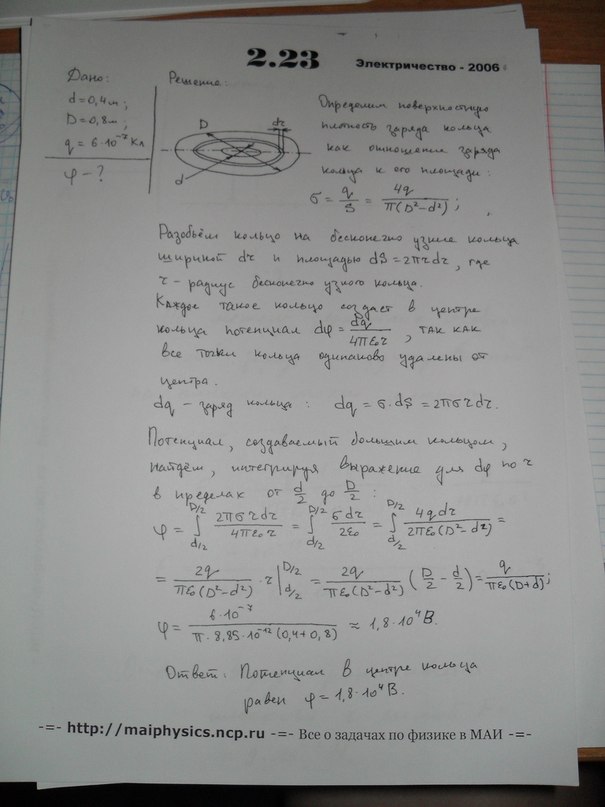 2.23
Электричество - 2006
Дано:
d = 0,4 м;
D = 0,8 м;
q = 6·10⁻⁷ Кл
φ - ?
Решение:
D
dr
d
Определим поверхностную
плотность заряда кольца
как отношение заряда
кольца к его площади:
σ = q/S = 4q/π(D²-d²);
Разобьём кольцо на бесконечно узкие кольца
шириной dr и площадью dS = 2πrdr, где
r - радиус бесконечно узкого кольца.
Каждое такое кольцо создаст в центре
кольца потенциал dφ = dq/4πε₀r, так как
все точки кольца одинаково удалены от
центра.
dq - заряд кольца: dq = σ·dS = 2πσrdr.
Потенциал, создаваемый большим кольцом,
найдём, интегрируя выражение для dφ по r
в пределах от d/2 до D/2:
φ = ∫_{d/2}^{D/2} 2πσrdr/4πε₀r = ∫_{d/2}^{D/2} σdr/2ε₀ = ∫_{d/2}^{D/2} 4qdr/2πε₀(D²-d²) =
= 2q/πε₀(D²-d²) · r|_{d/2}^{D/2} = 2q/πε₀(D²-d²) (D/2 - d/2) = q/πε₀(D+d);
φ = 6·10⁻⁷/π·8,85·10⁻¹²(0,4+0,8) ≈ 1,8·10⁴ В.
Ответ: Потенциал в центре кольца
равен φ = 1,8·10⁴ В.
-=- http://maiphysics.ncp.ru -=- Все о задачах по физике в МАИ -=-